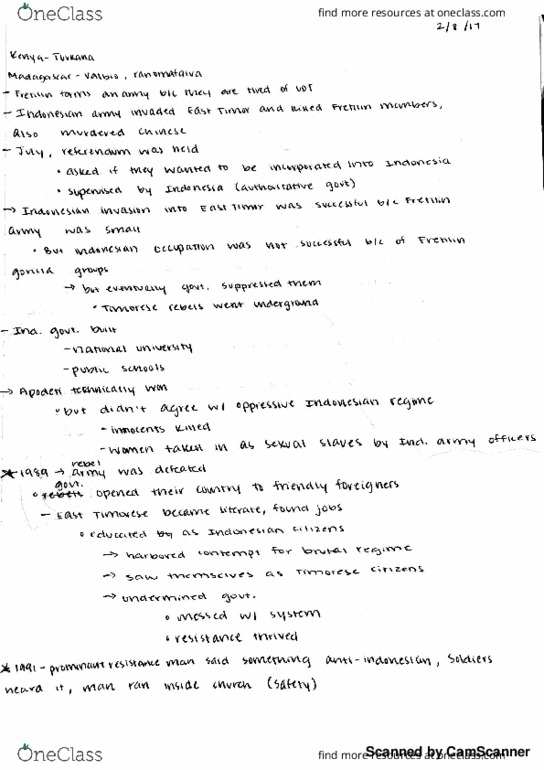 OneClass
find more resources at oneclass.com
2/8/17
Kenya - Turkana
Madagascar - Valbio, ranomafaiva
- Fretilin forms an army b/c they are tired of UDT
- Indonesian army invaded East Timor and killed Fretilin members,
also murdered Chinese
- July, referendum was held
• asked if they wanted to be incorporated into Indonesia
• supervised by Indonesia (authoritative govt)
→ Indonesian invasion into East Timor was successful b/c Fretilin
army was small
• But Indonesian occupation was not successful b/c of Fretilin
gorilla groups
→ but eventually govt. suppressed them
• Timorese rebels went underground
- Ind. govt. built
- national university
- public schools
→ Apodeti technically won
• but didn't agree w/ oppressive Indonesian regime
- innocents killed
- women taken in as sexual slaves by Ind. army officers
* 1989 → rebel army was defeated
• govt. opened their country to friendly foreigners
- East Timorese became literate, found jobs
• educated by as Indonesian citizens
→ harbored contempt for brutal regime
→ saw themselves as Timorese citizens
→ undermined govt.
• messed w/ system
• resistance thrived
* 1991 - prominant resistance man said something anti-indonesian, soldiers
heard it, man ran inside church (safety)
OneClass
find more resources at oneclass.com
Scanned by CamScanner